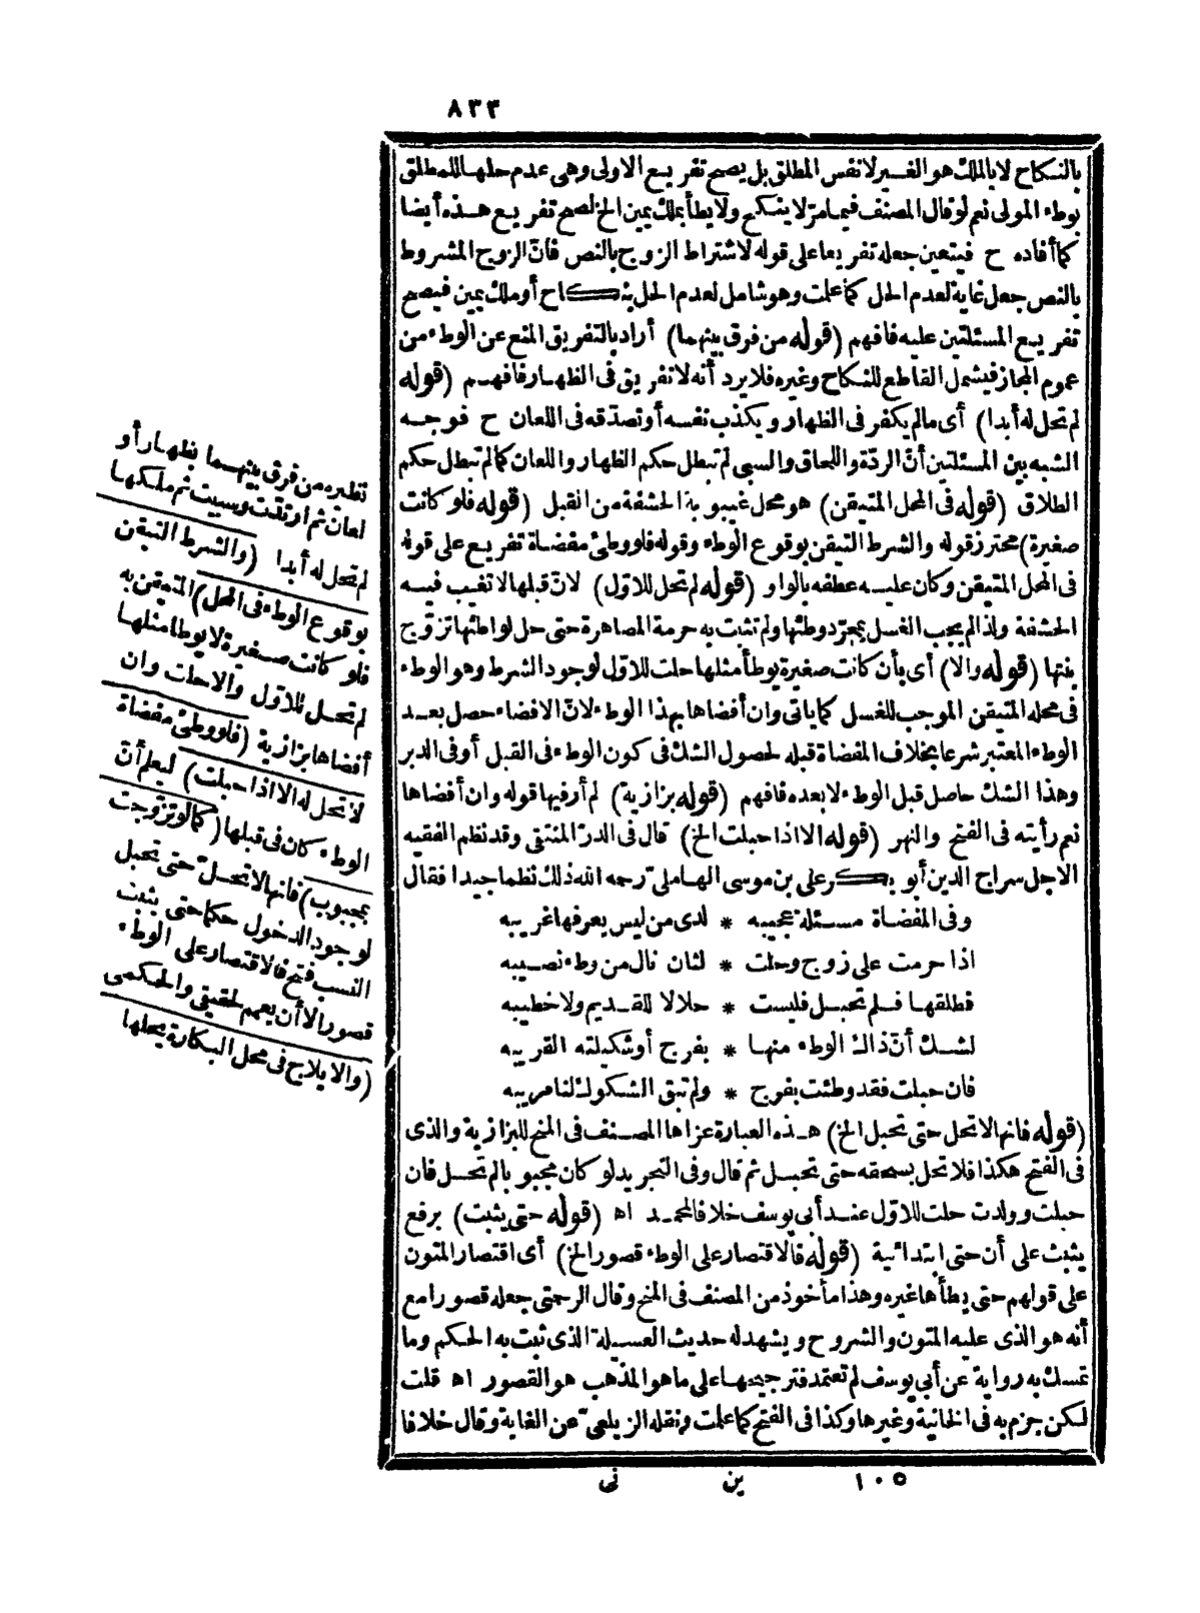 ٨٣٣
بالنكاح لا بالملك هو الغير لا نفس المطلق بل يصح تفريع الاولى وهى عدم حلها للمطلق
بوطء المولى نعم لو قال المصنف فيما مر لا ينكح ولا يطأ بملك يمين الخ لصح تفريع هذه أيضا
كما أفاده ح فيتعين جعله تفريعا على قوله لاشتراط الزوج بالنص فان الزوج المشروط
بالنص جعل غاية لعدم الحل كما علمت وهو شامل لعدم الحل بنكاح أو ملك يمين فيصح
تفريع المسئلتين عليه فافهم (قوله من فرق بينهما) أراد بالتفريق المنع عن الوطء من
عموم المجاز فيشمل القاطع للنكاح وغيره فلا يرد أنه لا تفريق فى الظهار فافهم (قوله
لم تحل له أبدا) أى ما لم يكفر فى الظهار ويكذب نفسه أو تصدقه فى اللعان ح فوجه
الشبه بين المسئلتين أنّ الردّة واللحاق والسبى لم تبطل حكم الظهار واللعان كما لم تبطل حكم
الطلاق (قوله فى المحل المتيقن) هو محل غيبوبة الحشفة من القبل (قوله فلو كانت
صغيرة) محترز قوله والشرط التيقن بوقوع الوطء وقوله فلو وطئ مفضاة تفريع على قوله
فى المحل المتيقن وكان عليه عطفه بالواو (قوله لم تحل للاوّل) لانّ قبلها لا تغيب فيه
الحشفة ولذا لم يجب الغسل بمجرّد وطئها ولم تثبت به حرمة المصاهرة حتى حل لواطئها تزوّج
بنتها (قوله والا) أى بأن كانت صغيرة يوطأ مثلها حلت للاوّل لوجود الشرط وهو الوطء
فى محله المتيقن الموجب للغسل كما يأتى وان أفضاها بهذا الوطء لانّ الافضاء حصل بعد
الوطء المعتبر شرعا بخلاف المفضاة قبله لحصول الشك فى كون الوطء فى القبل أو فى الدبر
وهذا الشك حاصل قبل الوطء لا بعده فافهم (قوله بزازية) لم أر فيها قوله وان أفضاها
نعم رأيته فى الفتح والنهر (قوله الا اذا حبلت الخ) قال فى الدرّ المنتقى وقد نظم الفقيه
الاجل سراج الدين أبو بكر على بن موسى الهاملىّ رحمه الله ذلك نظما جيدا فقال
وفى المفضاة مسئلة عجيبه * لدى من ليس يعرفها غريبه
اذا حرمت على زوج وحلت * لثان نال من وطء نصيبه
فطلقها فلم تحبل فليست * حلالا للقديم ولا خطيبه
لشك أنّ ذاك الوطء منها * بفرج أو شكيلته القريبه
فان حبلت فقد وطئت بفرج * ولم تبق الشكوك لنا مريبه
(قوله فانها لا تحل حتى تحبل الخ) هذه العبارة عزاها المصنف فى المنح للبزازية والذى
فى الفتح هكذا فلا تحل بسحقه حتى تحبل ثم قال وفى التجريد لو كان مجبوبا لم تحل فان
حبلت وولدت حلت للاوّل عند أبى يوسف خلافا لمحمد اه (قوله حتى يثبت) برفع
يثبت على أن حتى ابتدائية (قوله فالاقتصار على الوطء قصور الخ) أى اقتصار المتون
على قولهم حتى يطأها غيره وهذا مأخوذ من المصنف فى المنح وقال الرحمتى جعله قصورا مع
أنه هو الذى عليه المتون والشروح ويشهد له حديث العسيلة الذى ثبت به الحكم وما
تمسك به رواية عن أبى يوسف لم تعتمد فترجيحها على ما هو المذهب هو القصور اه قلت
لكن جزم به فى الخانية وغيرها وكذا فى الفتح كما علمت ونقله الزيلعىّ عن الغاية وقال خلافا
نظيره من فرق بينهما بظهار أو
لعان ثم ارتدّت وسبيت ثم ملكها
لم تحل له أبدا (والشرط التيقن
بوقوع الوطء فى المحل) المتيقن به
فلو كانت صغيرة لا يوطأ مثلها
لم تحل للاوّل والا حلت وان
أفضاها بزازية (فلو وطئ مفضاة
لا تحل له الا اذا حبلت) ليعلم أنّ
الوطء كان فى قبلها (كما لو تزوّجت
بمجبوب) فانها لا تحل حتى تحبل
لوجود الدخول حكما حتى يثبت
النسب فتح فالاقتصار على الوطء
قصور الا أن يعمم للحقيقى والحكمى
(والايلاج فى محل البكارة يحلها
١٠٥ ين نى